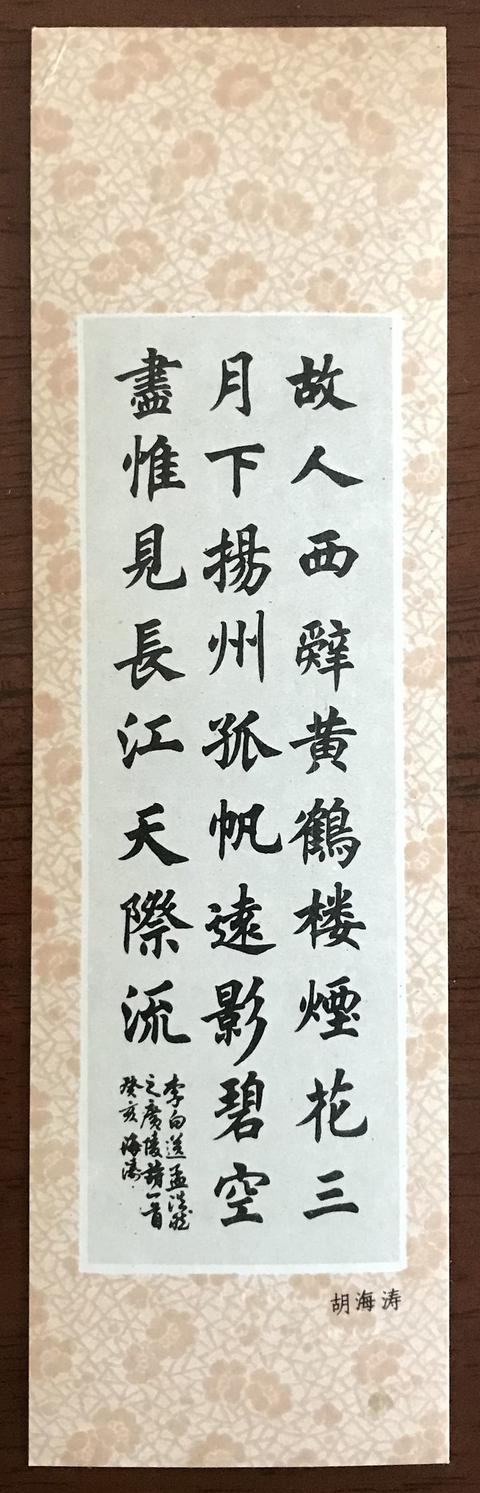 故人西辭黄鶴楼煙花三
月下揚州孤帆遠影碧空
盡惟見長江天際流
李白送孟浩然
之廣陵詩一首
癸亥海濤
胡海涛